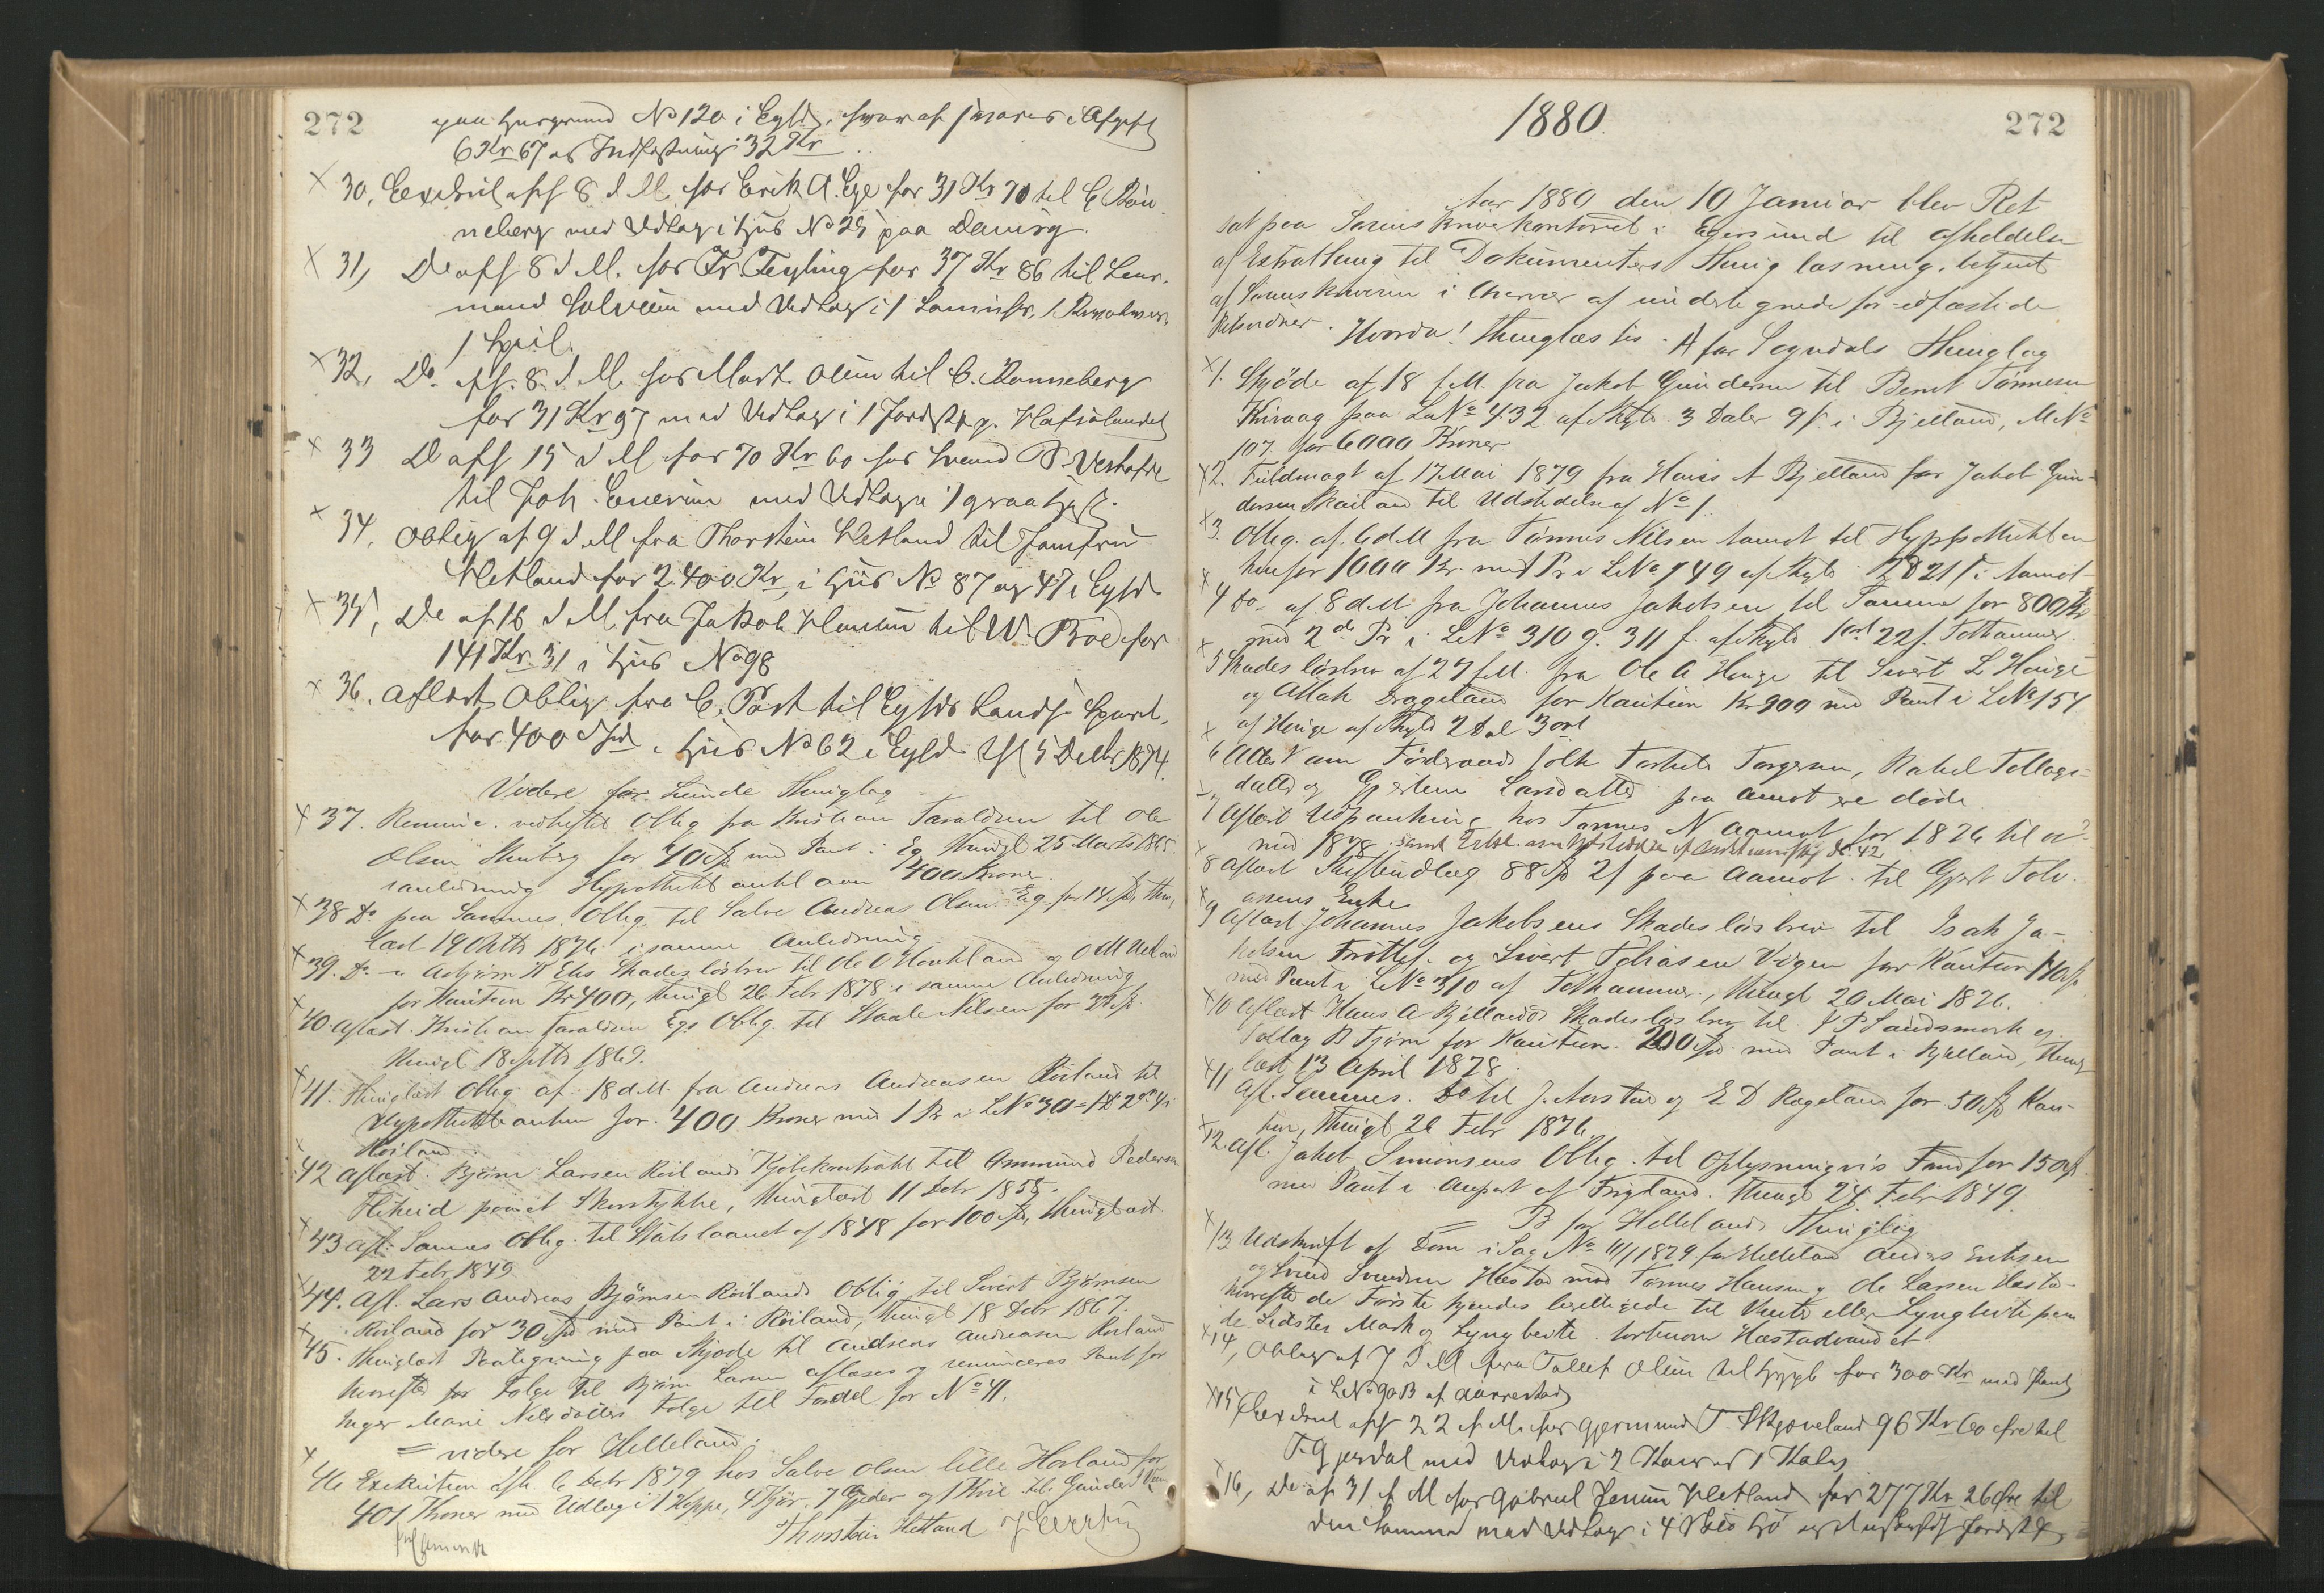 272
paa Huusgrund No 120 i Egsd, hvoraf svares i Afgift
6 Kr 67 og Indfæstning 32 Kr
30, Execution afh 8 d M. hos Erik A. Ege for 31 Kr 70 til C Rön
neberg med Udlæg i Huus No 25 paa
31, Do afh 8 d M. hos Fr Feyling for 37 Kr 86 til Lens-
mand med Udlæg i 1
1 Speil.
32, Do. afh. 8. d. M. hos Mart. Olsen til C. Rönneberg
for 31 Kr 97 med Udlæg i 1 Jordst p.
33 Do afh 15 d M for 70 Kr 60 hos Svend
til Joh. med Udlæg i 1 graa Hest.
34, Oblig af 9 d M fra Thorstein Hetland til Jomfru
Hetland for 2400 Kr, i Huus No 87 og 47 i Egsd
35, Do af 16 d M fra Jakob Hansen til W. Boe for
141 Kr. 31 i Huus No 98
36. Aflæst Oblig fra C. Post til Egsds Lands Spareb.
for 400 Spd i Huus No 62 i Egsd 5 Decbr 1874.
Videre for Lunde Thinglag
37. Renunc. vedheftet Oblig fra Kristian Taraldsen til Ole
Olsen Stenberg for 70 Spd med Pant i Eg Thingl 25 Marts 1865
i anledning Hypothekbankl aan 400 Kroner.
38 Do paa Sammes Oblig til Salve Andreas Olsen Eg for 14 Spd, thing
læst 19 Oktb 1876 i samme Anledning
39. Do - Asbjörn K Eies Skadeslösbrev til Ole O Hovland og O M Hetland
for Kaution Kr 400, thingl 26 Febr 1878 i samme Anledning
40. Aflæst Kristian Taraldsen Egs Oblig. til Staale Nilsen for 32 Spd
thingl 18 Septb 1869.
41. Thinglæst Oblig af 18 d M. fra Andreas Andreasen Röiland til
Hypothekbanken for 400 Kroner med 1 Pr i LNo 30 = 1 D 2 ort 4 i
Röiland.
42 Aflæst Björn Larsen Röilands Kjöbekontrakt til Ommund Pedersen
paa et Skovstykke, thinglæst 11 Debr 1855.
43 Afl: Sammes Oblig til Statslaanet af 1848 for 100 Spd, thinglæst
22 Febr 1849
44. Afl. Lars Andreas Björnsen Röilands Oblig til Sivert Björnsen
Röiland for 30 Spd med Pant i Röiland, thingl 18 Debr 1867.
45. Thinglæst Paategning paa Skjöde til Andreas Andreasen Röiland
hvorefter for Fölge til Björn Larsen aflæses og renunceres Pant for
Inger Marie Nilsdatters Fölge til Fordel for No 41.
= videre for Helleland.
46 Exekution afh. 6 Debr 1879 hos Salve Olsen lille Hovland for
401 Kroner med Udlæg i 1 Hoppe, 4 Kjör, 7 Gjeder og 1 Kvie til Gunder
Thorstein Hetland
1880.
272
Aar 1880 den 10 Januar blev Ret
sat paa Sorenskriverkontoret i Egersund til afholdelse
af Extrathing til Dokumenters Thinglæsning, betjent
af Sorenskriveren i Overvær af undertegnede for edfæstede
Retsvidner. Hvorda! thinglæstes. A for Sogndals Thinglag
1. Skjöde af 18 f M. fra Jakob Gundersen til Bernt Tönnesen
Kivaag paa LNo 432 af Skyld 3 Daler 9 s i Bjelland, MNo
107 for 6000 Kroner
2. Fuldmagt af 17 Mai 1879 fra Hans A Bjelland for Jakob Gun-
dersen Skailand til Udstedelse af No 1.
3. Oblig. af 6 d M fra Tönnes Nilsen Aamot til Hypothekban
ken for 1000 Kr. med Pr i LNo 149 af Skyld 2 D 21 s i Aamot
4 Do. af 8 d M fra Johannes Jakobsen til Samme for 800 Kr
med 2 d Pr i LNo 310 g. 311 f. af Skyld 1 ort 22 s. Tothammer.
5 Skadeslösbrev af 27 f M. fra Ole A Hauge til Sivert L Hauge
og Atlak Drageland for Kaution Kr 900 med Pant i LNo 154
af Hauge af Skyld 2 Dal 3 ort
6 Attest om Föderaadsfolk Torkel Torgersen, Rakel Tollags-
datter og Gjertine Larsdatter paa Aamot ere döde.
7 Aflæst Udpantning hos Tönnes N Aamot for 1876 til og
med 1878
8 Aflæst Skifteudlæg 88 Spd 2 s paa Aamot til Gjert Tolv.
assens Enke
9 Aflæst Johannes Jakobsens Skadeslösbrev til Isak Ja-
kobsen Fröitl. og Sivert Tobiasen Vigen for Kaution 140 Spd
med Pant i LNo 310 af Tothammer, thingl 20 Mai 1876.
10 Aflæst Hans A Bjellands Skadeslösbrev til J P Sandsmark og
Tollag B Tjörn for Kaution 200 Spd med Pant i Bjelland, thing
læst 13 April 1878.
11 Afl. Sammes. Do til J. Aarstad og E D Rageland for 50 Spd Kau-
tion, thingl 26 Febr 1876.
12. Afl. Jakob Simonsens Oblig. til Oplysningsvæs Fond for 150 Spd
med Pant i Anpart af Frigstand. thingl 24 Febr 1849.
= B for Hellelands Thinglag
13 Udskrift af Dom i Sag No 111/1879 for Helleland Anders Eriksen
og Svend Svendsen Hæstad mod Tönnes Hansen og Ole Larsen Hæstad
hvorefter de Förste kjendes berettigede til Vinter eller Lyngbeite paa
de Sidstes Mark og Lyngbeite. Hæstadvandet
14, Oblig af 7 d M fra Tollef Olsen til Hypb for 300 Kr med Pant
i LNo 90B af Aarrestad
15, Execution afh 22 f. M. hos Gjermund T. Skjæveland 96 Kr 60 öre til
T. Gjesdal med Udlæg i 2 Kör og 1 Kalv
16, Do af 31 f M hos Gabriel Jensen Hetland for 277 Kr 26 Öre til
den Samme med Udlæg i 4